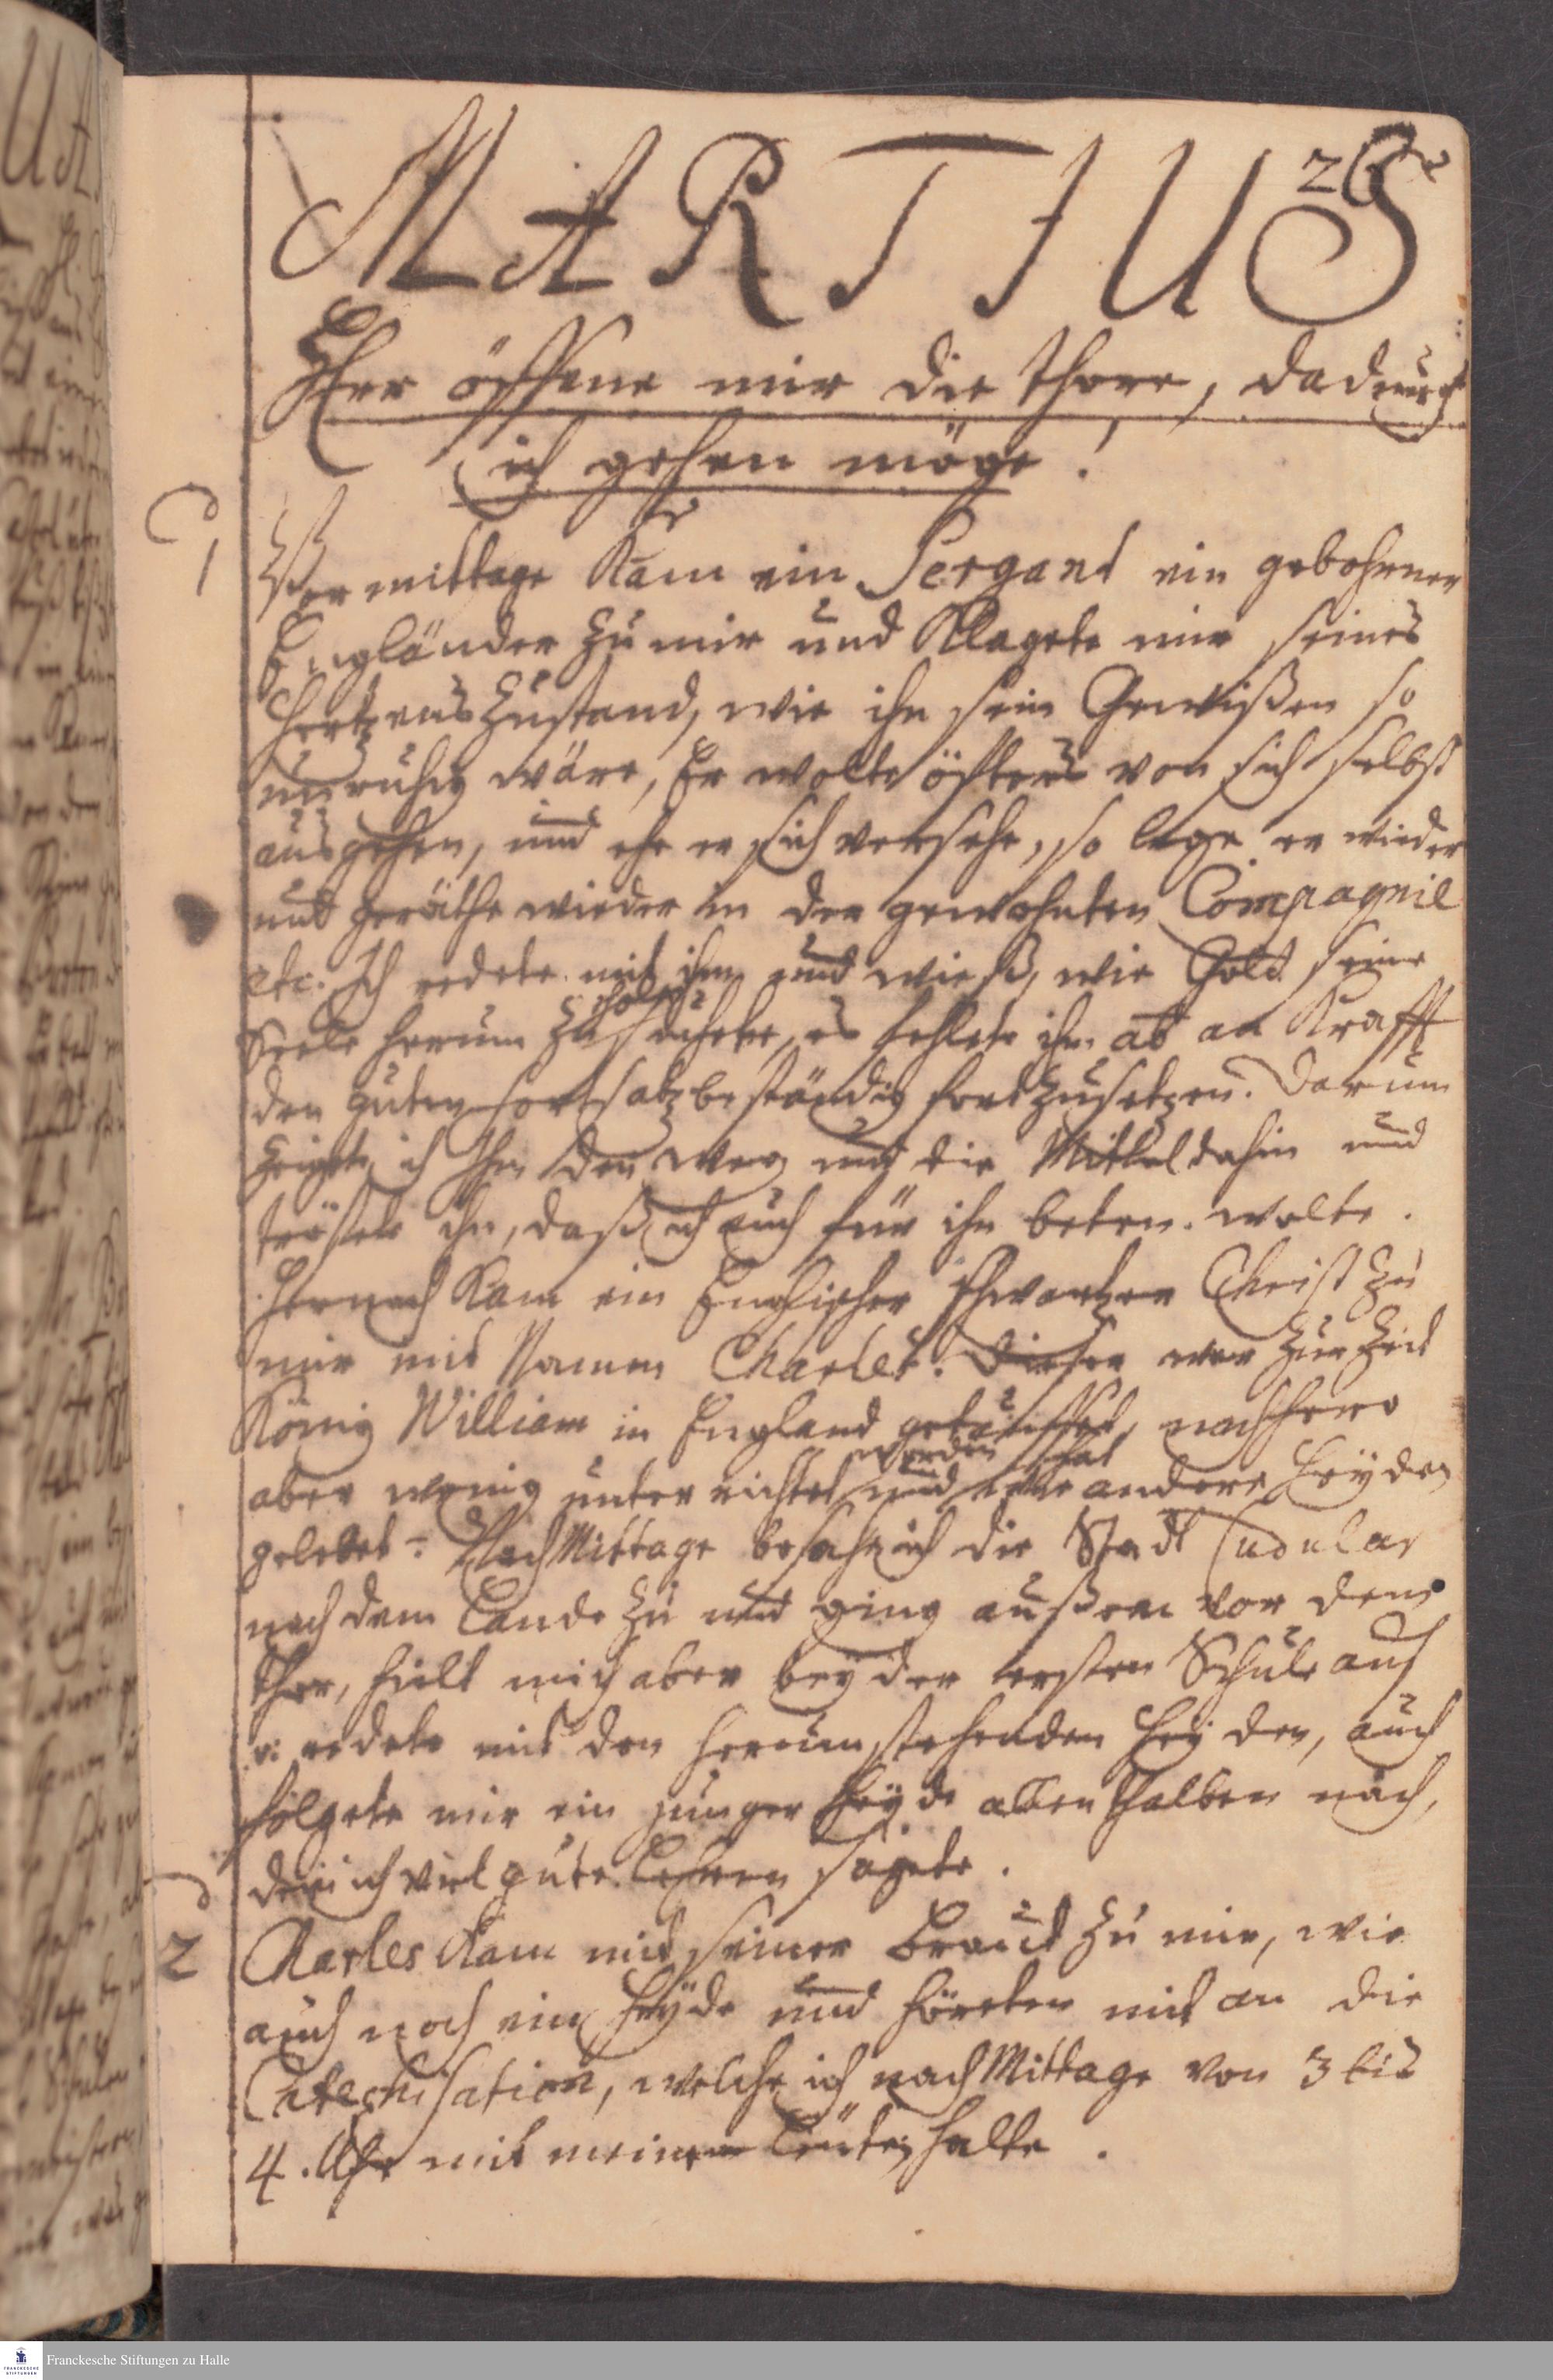 26
MARTIUS
HErr öffene mir die Thore, dadurch
ich gehen möge!
1 Vormittage kam ein Sergant ein gebohrner
Engländer zu mir und klagete mir seines
Hertzens Zustand, wie ihn sein Gewißen so
unruhig wäre, Er wolte öfters von sich selbst
ausgehen, und ehe er sich versehe, so lege er wieder
und geräthe wieder in der gewohnten Compagnie
etc. Ich redete mit ihm und wieß, wie Gott seine
Seele herum zu holen suchete, es fehlete ihm ab an Krafft
den guten Vorsatz beständig fortzusetzen. Darum
zeigete ich Ihm den Weg und die Mittel dahin und
tröstete ihn, daß ich auch für ihn beten wolte.
Hernach kam ein Englischer schwartzer Christ zu
mir mit Namen Charles. Dieser war zur Zeit
König William in England getauffet, nachhero
aber wenig unterrichtet worden und wie andere Heyden hat
gelebet. Nach Mittage besahe ich die Stadt Cudular
nach dem Lande zu und ging außen vor dem
Thor, hielt mich aber bey der ersten Schule auf
u. redete mit den herum stehenden Heyden, auch
folgete mir ein junger Heyde allenthalben nach,
dem ich viel gute Lehren sagete.
2 Charles kam mit seiner Braut zu mir, wie
auch noch ein Heyde und höreten mit an die
Catechisation, welche ich nach Mittage von 3 bis
4. Uhr mit meinen Leuten halte.
Franckesche Stiftungen zu Halle